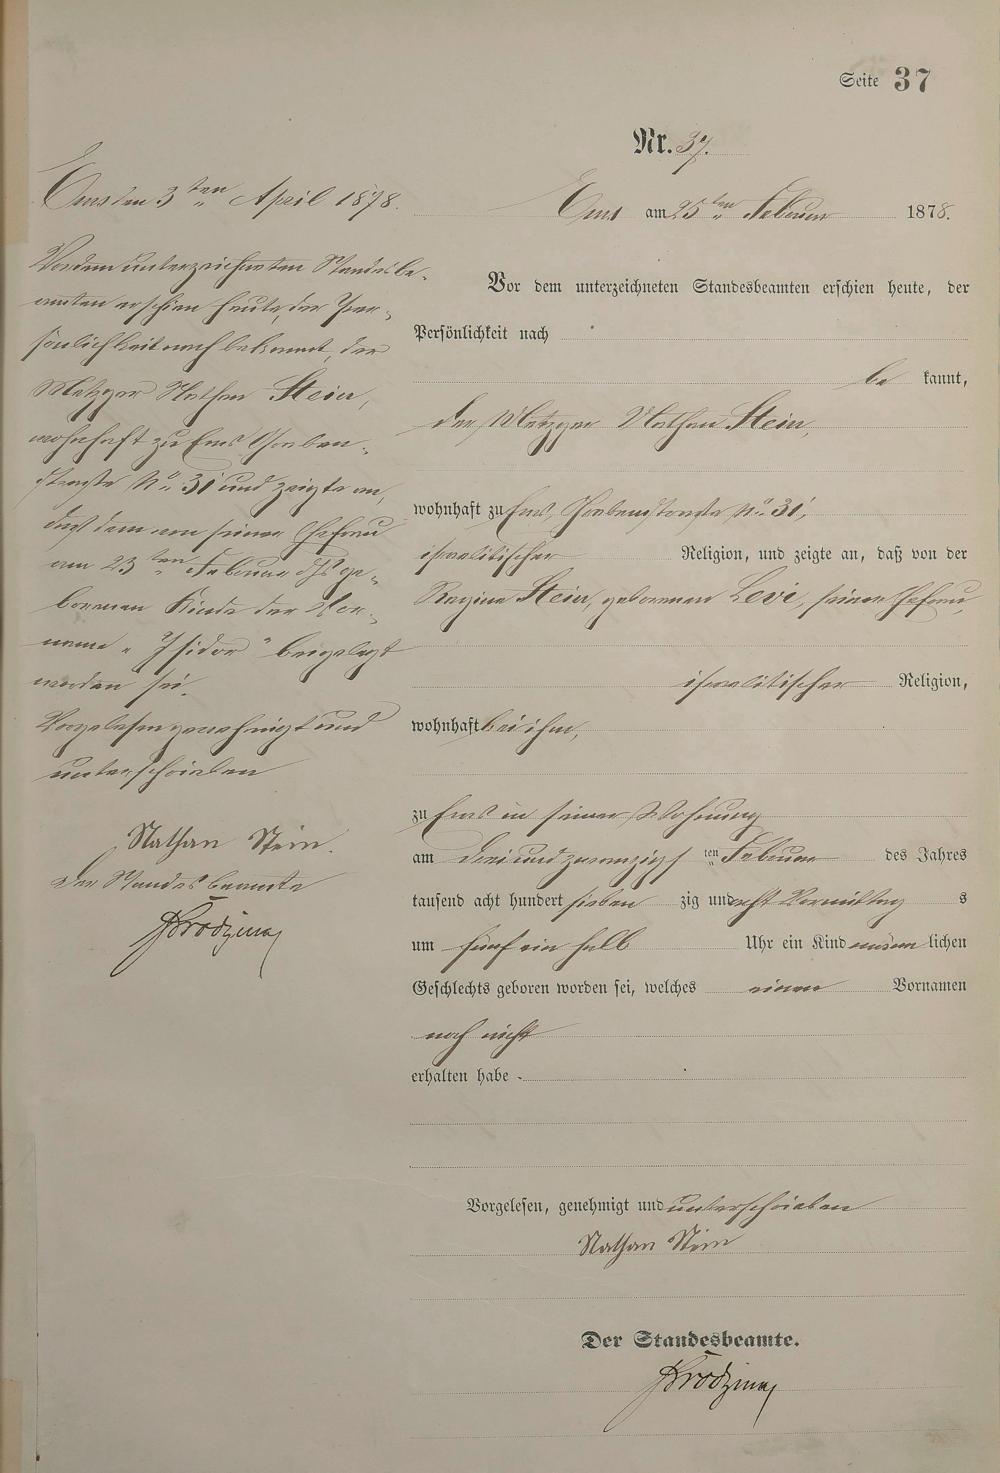 Seite 37
Nr. 37.
Ems am 25ten Februar 1878.
Vor dem unterzeichneten Standesbeamten erschien heute, der
Persönlichkeit nach
be kannt,
der Metzger Nathan Stein,
wohnhaft zu Ems, Grabenstraße No 31,
israelitischer Religion, und zeigte an, daß von der
Regina Stein, geborenen Levi, seiner Ehefrau,
israelitischer Religion,
wohnhaft bei ihm,
zu Ems in seiner Wohnung
am drei und zwanzigsten Februar des Jahres
tausend acht hundert sieben zig und acht Vormittag s
um fünf ein halb Uhr ein Kind männ lichen
Geschlechts geboren worden sei, welches einen Vornamen
noch nicht
erhalten habe.
Vorgelesen, genehmigt und unterschrieben
Nathan Stein
Der Standesbeamte.
Ems den 3ten April 1878.
Vor dem unterzeichneten Standesbe-
amten erschien heute, der Per-
sönlichkeit nach bekannt, der
Metzger Nathan Stein,
wohnhaft zu Ems Graben-
straße No 31 und zeigte an,
daß dem von seiner Ehefrau
am 23ten Februar ds Js ge-
borenen Kinde der Vor-
name "Isidor" beigelegt
worden sei.
Vorgelesen genehmigt und
unterschrieben
Nathan Stein.
Der Standesbeamte